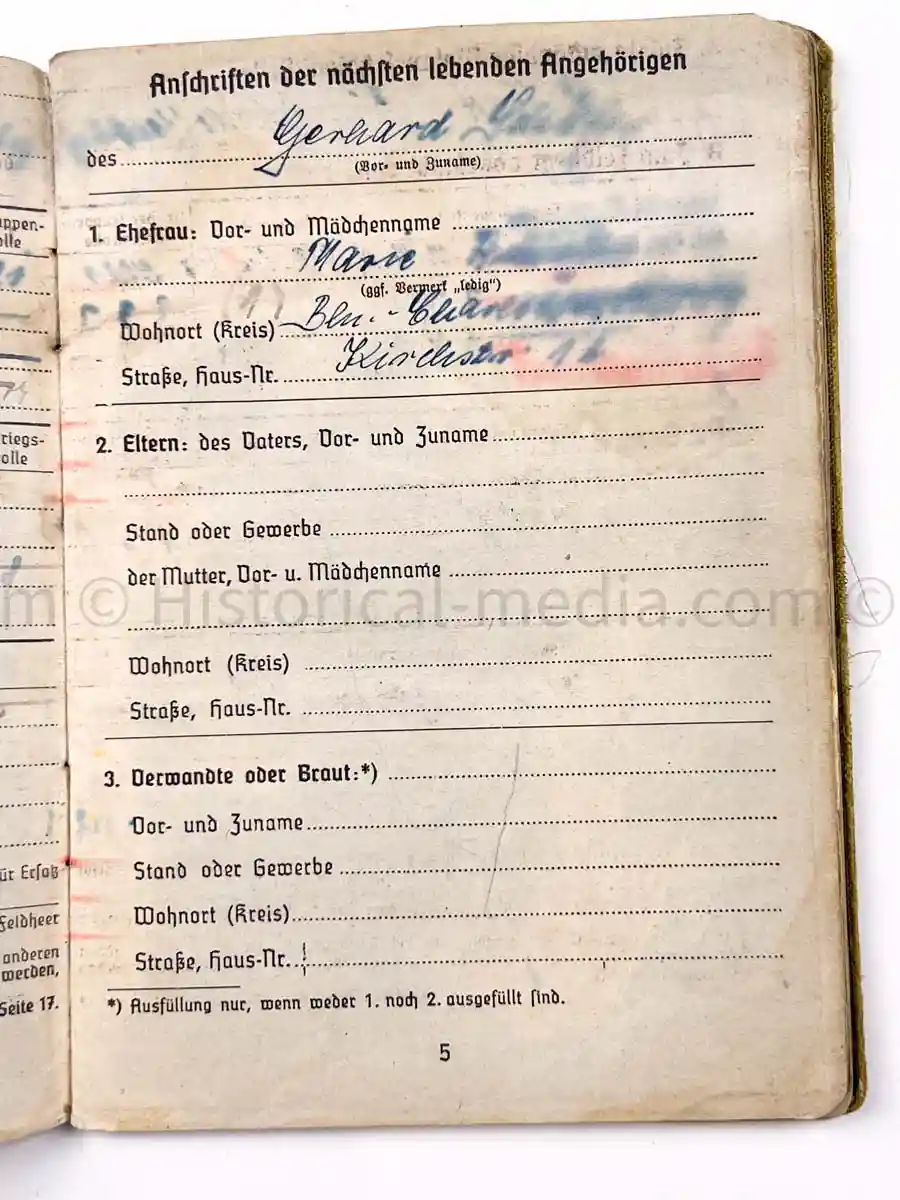 Anschriften der nächsten lebenden Angehörigen
des Gerhard
(Vor- und Zuname)
1. Ehefrau: Vor- und Mädchenname
Marie
(ggf. Vermerk „ledig“)
Wohnort (Kreis) Bln.-
Straße, Haus-Nr. Kirchstr
2. Eltern: des Vaters, Vor- und Zuname
Stand oder Gewerbe
der Mutter, Vor- u. Mädchenname
Wohnort (Kreis)
Straße, Haus-Nr.
3. Verwandte oder Braut:*)
Vor- und Zuname
Stand oder Gewerbe
Wohnort (Kreis)
Straße, Haus-Nr.
*) Ausfüllung nur, wenn weder 1. noch 2. ausgefüllt sind.
5
uppen-
olle
riegs-
olle
ür Ersatz
Feldheer
anderen
werden,
Seite 17.
m © Historical-media.com ©